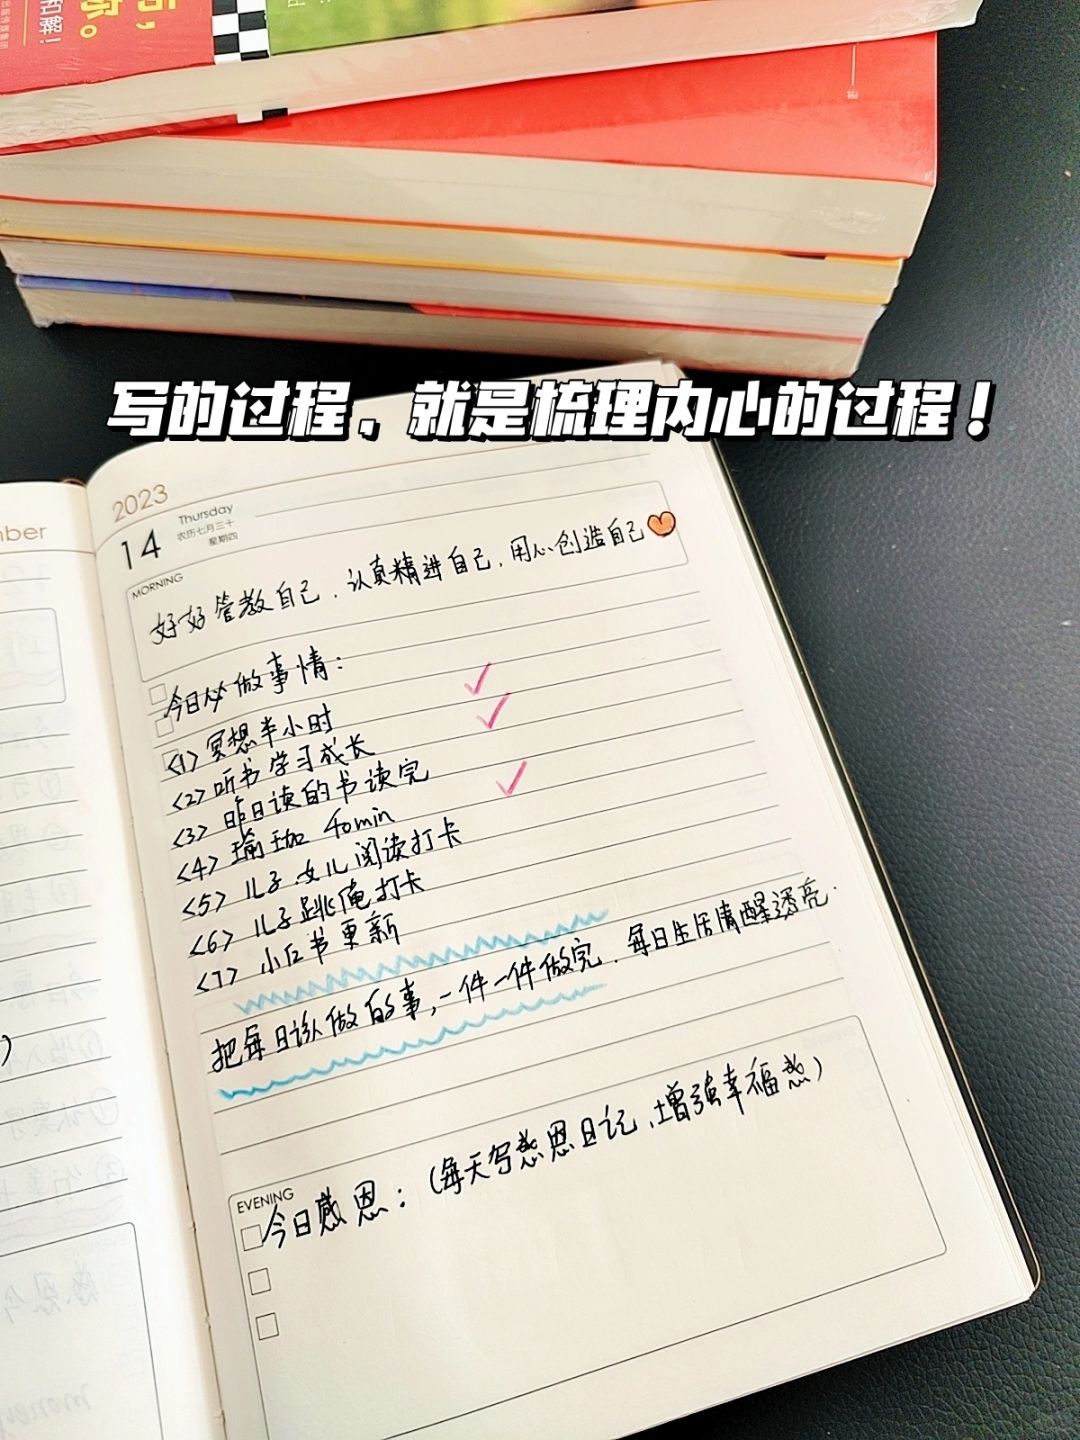 后，
你。
和解！
写的过程、就是梳理内心的过程！
mber
2023
14
Thursday
农历七月三十
星期四
MORNING
好好管教自己，认真精进自己，用心创造自己
今日必做事情：
<1>冥想半小时
<2>听书学习成长
<3>昨日读的书读完
<4>瑜珈 40min
<5>儿子、女儿阅读打卡
<6>儿子跳俺打卡
<7>小红书更新
把每日该做的事，一件一件做完，每日生活清醒透亮.
EVENING
今日感恩：（每天写感恩日记，增强幸福感）